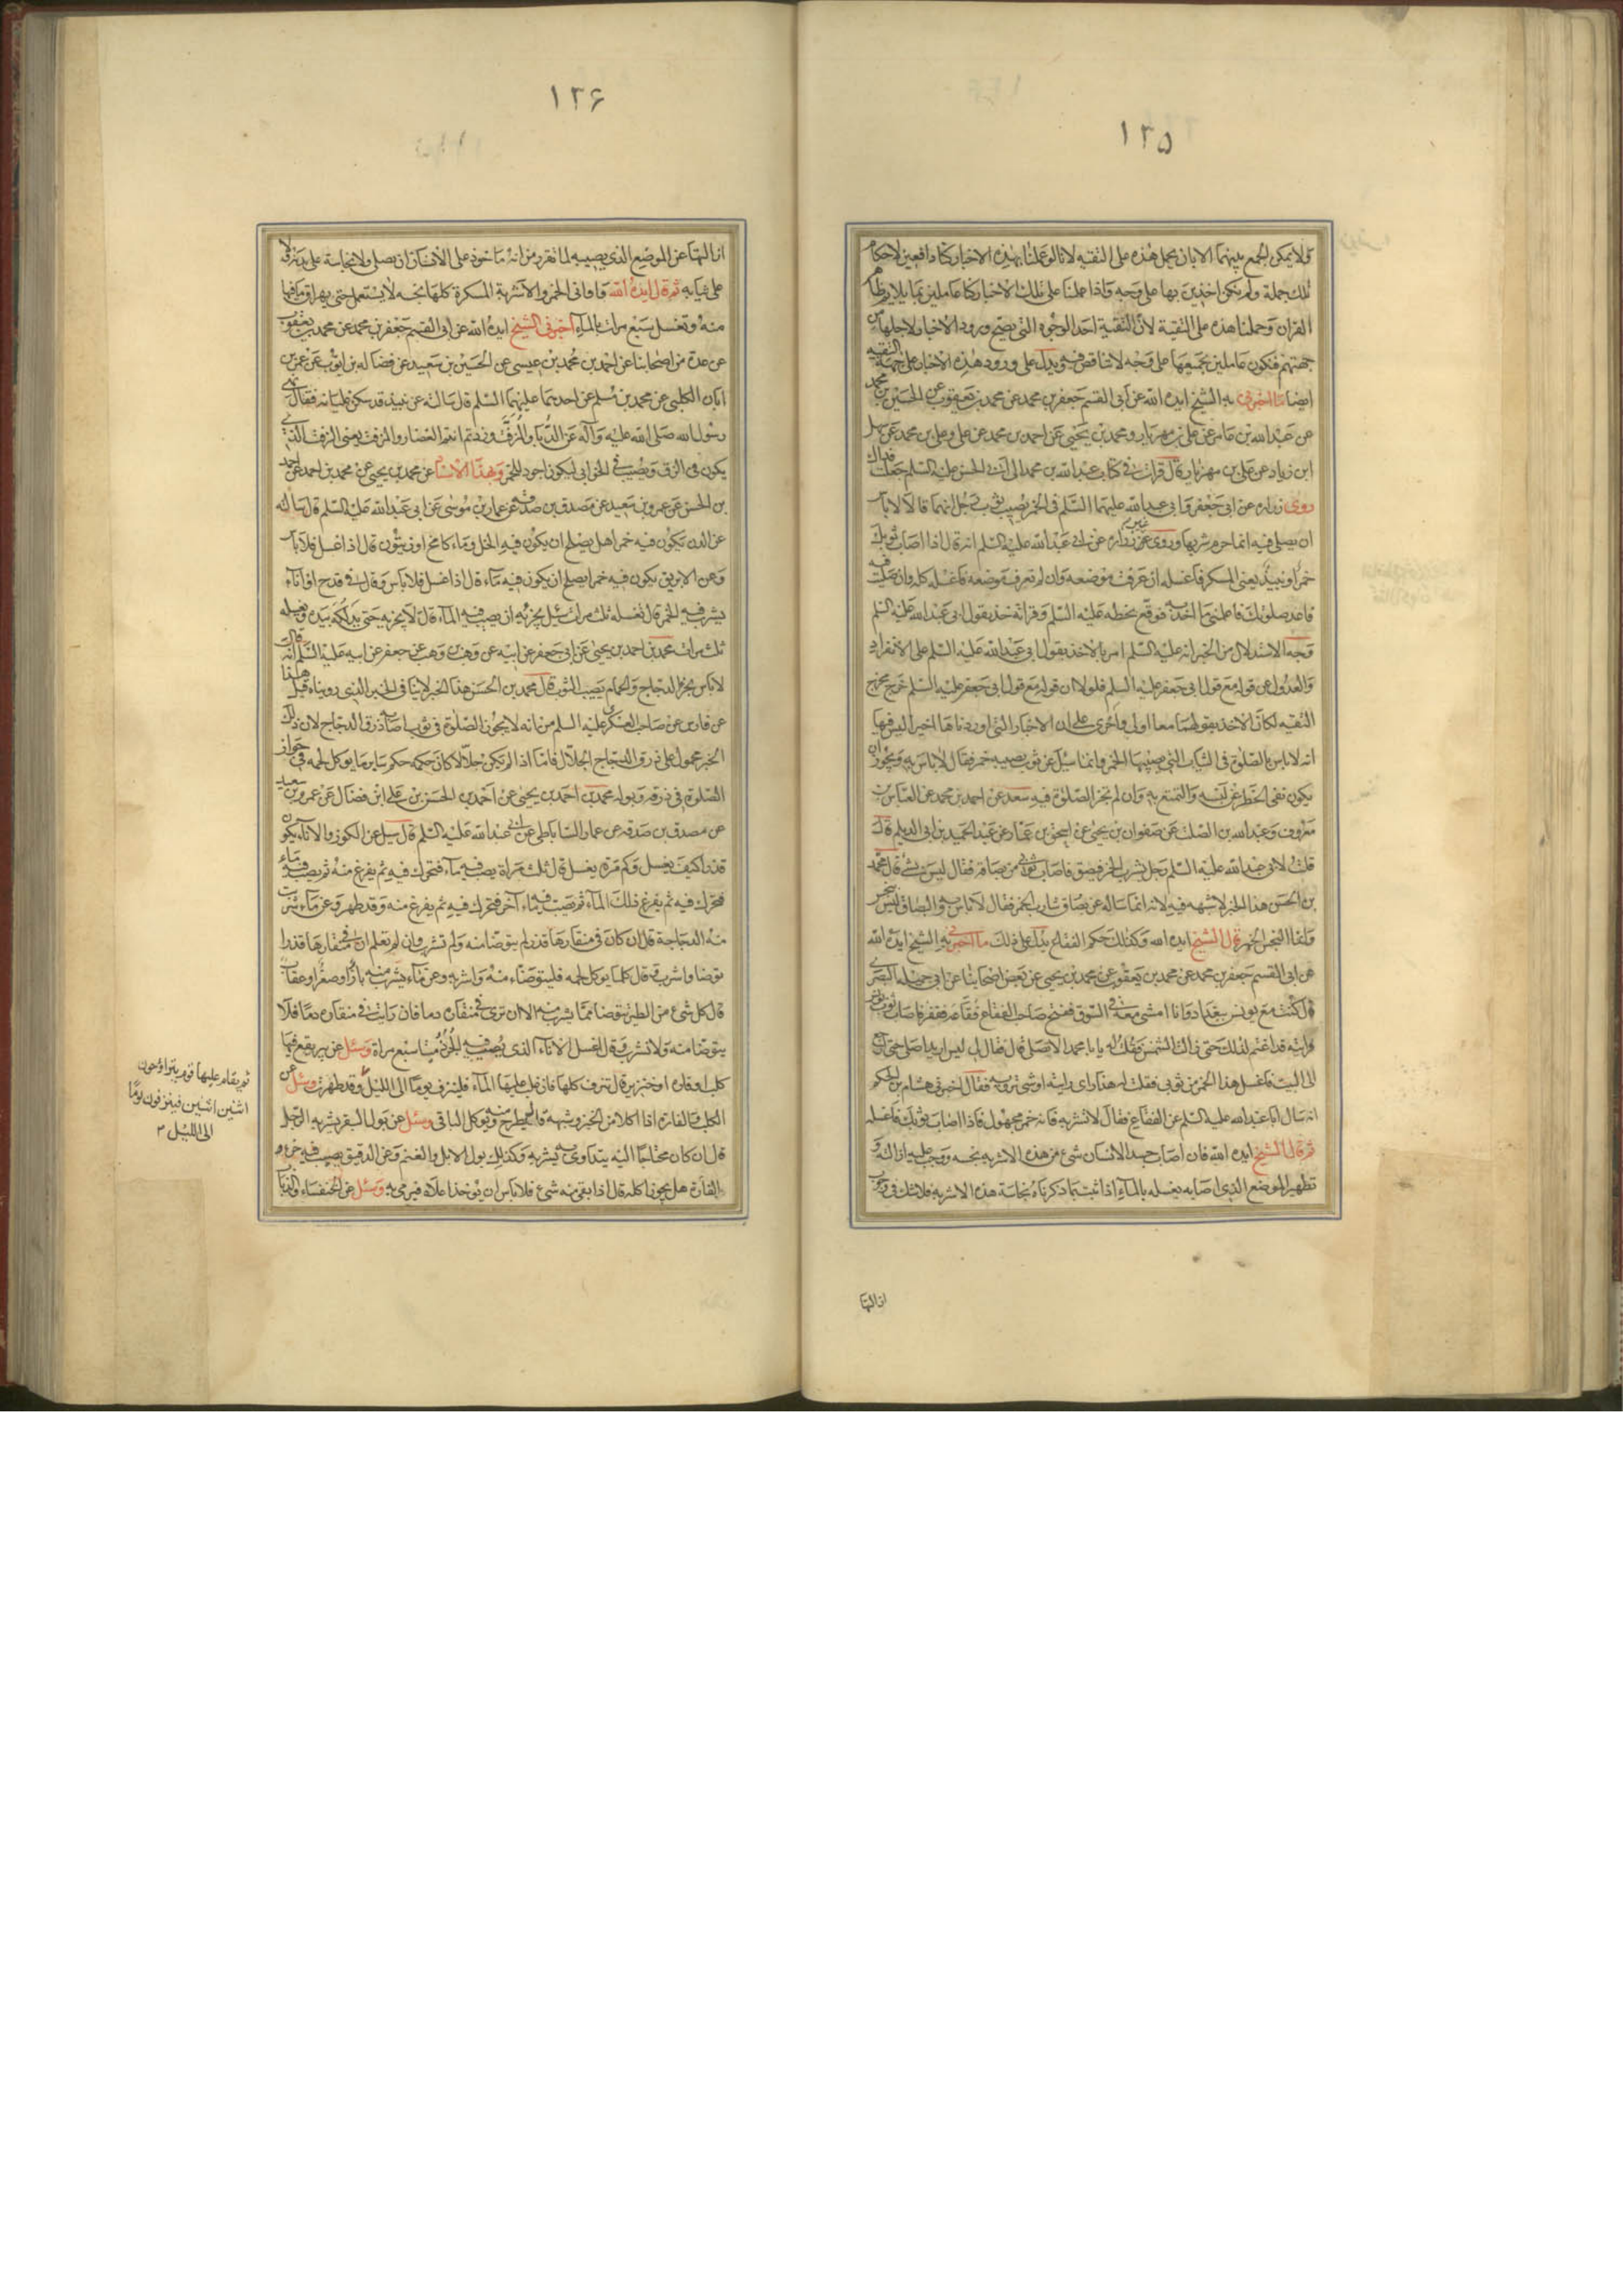 ١٢٥
ولا يمكن الجمع بينهما الا بان يحمل هذه على التقيه لانا لو عملنا بهذه الاخبار كنا دافعين لاحكام
تلك جملة ولم نكن اخذين بها على وجه واذا عملنا على تلك الاخبار كنا عاملين بما يلايم ظاهر
القران وحملنا هذه على التقية لان التقية احد الوجوه التي يصح ورود الاخبار لاجلها من
جهتهم فنكون عاملين بجميعها على وجه لا تناقض فيه ويدل على ورود هذه الاخبار على جهة التقيه
ايضا ما اخبرنى به الشيخ ايده الله عن أبى القسم جعفر بن محمد عن محمد بن يعقوب عن الحسين بن محمد
عن عبدالله بن عامر عن على بن مهزيار ومحمد بن يحيى عن احمد بن محمد عن على وعلى بن محمد عن سهل
ابن زياد عن على بن مهزيار قال قرات في كتاب عبدالله بن محمد الى ابى الحسن عليه السلم جعلت فداك
روى زراره عن ابى جعفر وابى عبدالله عليهما السلم فى الخمر يصيب ثوب الرجل انهما قالا لا باس
ان يصلى فيه انما حرم شربها وروى غير زراره عن ابى عبدالله عليه السلم انه قال اذا اصاب ثوبك
خمر او نبيذ يعنى المسكر فاغسله ان عرفت موضعه وان لم تعرف موضعه فاغسله كله وان صليت فيه
فاعد صلوتك فاعلمنى ما اخذ به فوقع بخطه عليه السلم وقراته خذ بقول ابى عبدالله عليه السلم
وجه الاستدلال من الخبر انه عليه السلم امر بالاخذ بقول ابى عبدالله عليه السلم على الانفراد
والعدول عن قوله مع قول ابى جعفر عليه السلم فلولا ان قوله مع قول ابى جعفر عليه السلم خرج مخرج
التقيه لكان الاخذ بقولهما معا اولى واحرى على ان الاخبار التى اوردناها اخيرا ليس فيها
انه لا باس بالصلوة فى الثياب التى يصيبها الخمر وانما سئل عن ثوب يصيبه خمر فقال لا باس به ويجوز ان
يكون نفى الحظر عن لبسه والتمتع به وان لم تجز الصلوة فيه سعد عن احمد بن محمد عن العباس بن
معروف وعبدالله بن الصلت عن صفوان بن يحيى عن اسحق بن عمار عن عبد الحميد بن ابى الديلم قال
قلت لابى عبدالله عليه السلم رجل يشرب الخمر فيبصق فاصاب ثوبى من بصاقه فقال ليس بشئ قال محمد
بن الحسن هذا الخبر لا شبهه فيه لانه انما ساله عن بصاق شارب الخمر فقال لا باس به والبصاق ليس بنجس
وانما النجس الخمر قال الشيخ ايده الله وكذلك حكم الفقاع يدل على ذلك ما اخبرنى به الشيخ ايده الله
عن ابى القسم جعفر بن محمد عن محمد بن يعقوب عن محمد بن يحيى عن بعض اصحابنا عن ابى جميله البصرى
قال كنت مع يونس ببغداد وانا امشى معه فى السوق ففتح صاحب الفقاع فقاعه فقفز فاصاب ثوب يونس
فرايته قد اغتم لذلك حتى زالت الشمس فقلت له يا ابا محمد الا تصلى قال فقال لى ليس اريد اصلى حتى ارجع
الى البيت فاغسل هذا الخمر من ثوبى فقلت له هذا راى رايته او شى ترويه فقال اخبرنى هشام بن الحكم
انه سال ابا عبدالله عليه السلم عن الفقاع فقال لا تشربه فانه خمر مجهول فاذا اصاب ثوبك فاغسله
ثم قال الشيخ ايده الله فان اصاب جسد الانسان شئ من هذه الاشربه نجسه ووجب عليه ازالته و
تطهير الموضع الذى اصابه بغسله بالماء اذا ثبت بما ذكرناه نجاسة هذه الاشربه فلا شك فى وجوب
ازالتها
١٢۶
ازالتها عن الموضع الذى يصيبه لما تقرر من انه ماخوذ على الانسان ان يصلى ولا نجاسة على بدنه ولا
على ثيابه ثم قال ايده الله واوانى الخمر والاشربة المسكرة كلها نجسه لا يستعمل حتى يهراق ما فيها
منه وتغسل سبع مرات بالماء اخبرنى الشيخ ايده الله عن ابى القسم جعفر بن محمد عن محمد بن يعقوب
عن عدة من اصحابنا عن احمد بن محمد بن عيسى عن الحسين بن سعيد عن فضاله بن ايوب عن عمر بن
ابان الكلبى عن محمد بن مسلم عن احدهما عليهما السلم قال سالته عن نبيذ قد سكن غليانه فقال نهى
رسول الله صلى الله عليه وآله عن الدباء والمزفت وزدتم انتم الغضار والمزفت يعنى الزفت الذى
يكون فى الزق ويصب فى الخوابى ليكون اجود للخمر وبهذا الاسناد عن محمد بن يحيى عن محمد بن احمد عن احمد
بن الحسن عن عمرو بن سعيد عن مصدق بن صدقه عن عمار بن موسى عن ابى عبدالله عليه السلم قال سالته
عن الدن يكون فيه خمر اهل يصلح ان يكون فيه الخل وماء كامخ او زيتون قال اذا غسل فلا باس
وعن الابريق يكون فيه خمر ايصلح ان يكون فيه ماء قال اذا غسل فلا باس وقال فى قدح او اناء
يشرب فيه الخمر قال تغسله ثلث مرات سئل يجزيه ان يصب فيه الماء قال لا يجزيه حتى يدلكه بيده ويغسله
ثلث مرات محمد بن احمد بن يحيى عن ابى جعفر عن ابيه عن وهب بن وهب عن جعفر عن ابيه عليه السلم انه قال
لا باس بخرء الدجاج والحمام يصيب الثوب قال محمد بن الحسن هذا الخبر لا ينافى الخبر الذى رويناه قبل هذا
عن فارس عن صاحب العسكر عليه السلم من انه لا يجوز الصلوة فى ثوب اصابه ذرق الدجاج لان ذلك
الخبر محمول على ذرق الدجاج الجلال فاما اذا لم يكن جلالا كان حكمه حكم ساير ما يوكل لحمه فى جواز
الصلوة فى ذرقه وبوله محمد بن احمد بن يحيى عن احمد بن الحسن بن على ابن فضال عن عمرو بن سعيد
عن مصدق بن صدقه عن عمار الساباطى عن ابى عبدالله عليه السلم قال سئل عن الكوز والاناء يكون
قذرا كيف يغسل وكم مرة يغسل قال ثلث مرات يصب فيه ماء فتحرك فيه ثم يفرغ منه ثم يصب فيه ماء
فتحرك فيه ثم يفرغ ذلك الماء ثم يصب فيه ماء آخر فتحرك فيه ثم يفرغ منه وقد طهر وعن ماء شربت
منه الدجاجة قال ان كان فى منقارها قذر لم يتوضا منه ولم تشرب وان لم تعلم ان فى منقارها قذرا
توضا واشرب وقال كلما يوكل لحمه فليتوضاء منه واشربه وعن ماء يشرب منه باز او صقر او عقاب
قال كل شئ من الطير يتوضا مما يشرب منه الا ان ترى فى منقاره دما فان رايت فى منقاره دما فلا
يتوضا منه ولا تشرب وقال اغسل الاناء الذى تصيب فيه الجرذ ميتا سبع مرات وسئل عن بير يقع فيها
كلب او فارة او خنزير قال تنزف كلها فان غلب عليها الماء فلينزف يوما الى الليل وقد طهرت وسئل عن
الكلب والفارة اذا اكلا من الخبز وشبهه قال يطرح منه ويؤكل الباقى وسئل عن بول البقر يشربه الرجل
قال ان كان محتاجا اليه يتداوى به يشربه وكذلك بول الابل والغنم وعن الدقيق يصيب فيه خرء
الفارة هل يجوز اكله قال اذا بقى منه شئ فلا باس ان يؤخذ اعلاه فيرمى به وسئل عن الخنفساء والذباب
ثم يقام عليها قوم يتراوحون
اثنين اثنين فينزفون يوما
الى الليل